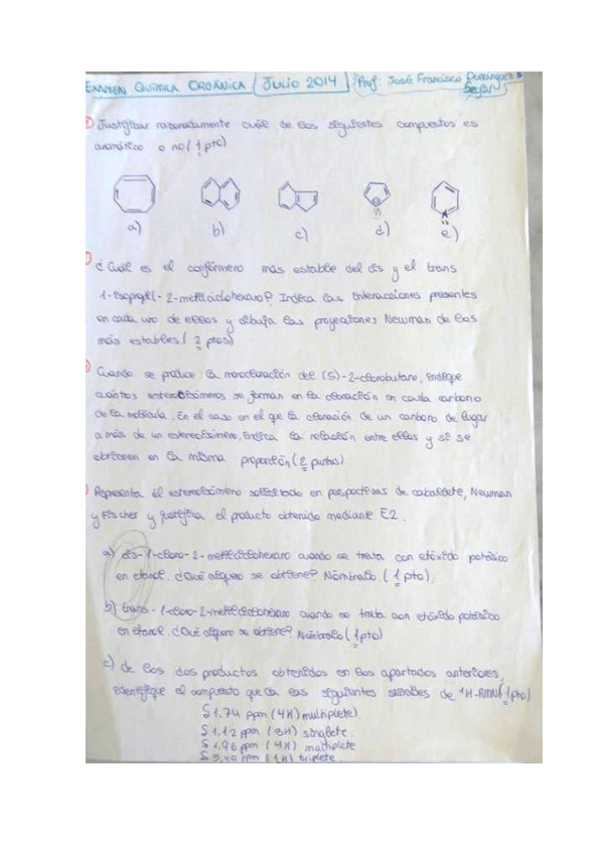 EXAMEN QUÍMICA ORGÁNICA / JULIO 2014 / Prof. José Francisco Domínguez
Justificar razonadamente cuál de los siguientes compuestos es
aromático o no (1 pto)
a) b) c) d) e)
¿Cuál es el confórmero más estable del cis y el trans
1-isopropil-2-metilciclohexano? Indica las interacciones presentes
en cada uno de ellos y dibuja las proyecciones Newman de los
más estables. (2 ptos)
Cuando se produce la monocloración del (S)-2-clorobutano, indique
cuántos estereoisómeros se forman en la cloración en cada carbono
de la molécula. En el caso en el que la cloración de un carbono de lugar
a más de un estereoisómero, indica la relación entre ellos y si se
obtienen en la misma proporción (2 puntos)
Representa el estereoisómero solicitado en perspectivas de caballete, Newman
y Fischer y justifica el producto obtenido mediante E2.
a) cis-1-cloro-2-metilciclohexano cuando se trata con etóxido potásico
en etanol. ¿Qué alqueno se obtiene? Nómbralo. (1 pto).
b) trans-1-cloro-2-metilciclohexano cuando se trata con etóxido potásico
en etanol. ¿Qué alqueno se obtiene? Nómbralo (1 pto)
c) de los dos productos obtenidos en los apartados anteriores,
identifique el compuesto que da las siguientes señales de ¹H-RMN (1 pto)
δ 1.74 ppm (4H) multiplete).
δ 1.12 ppm (3H) singlete.
δ 1.96 ppm (4H) multiplete
(1H) triplete.